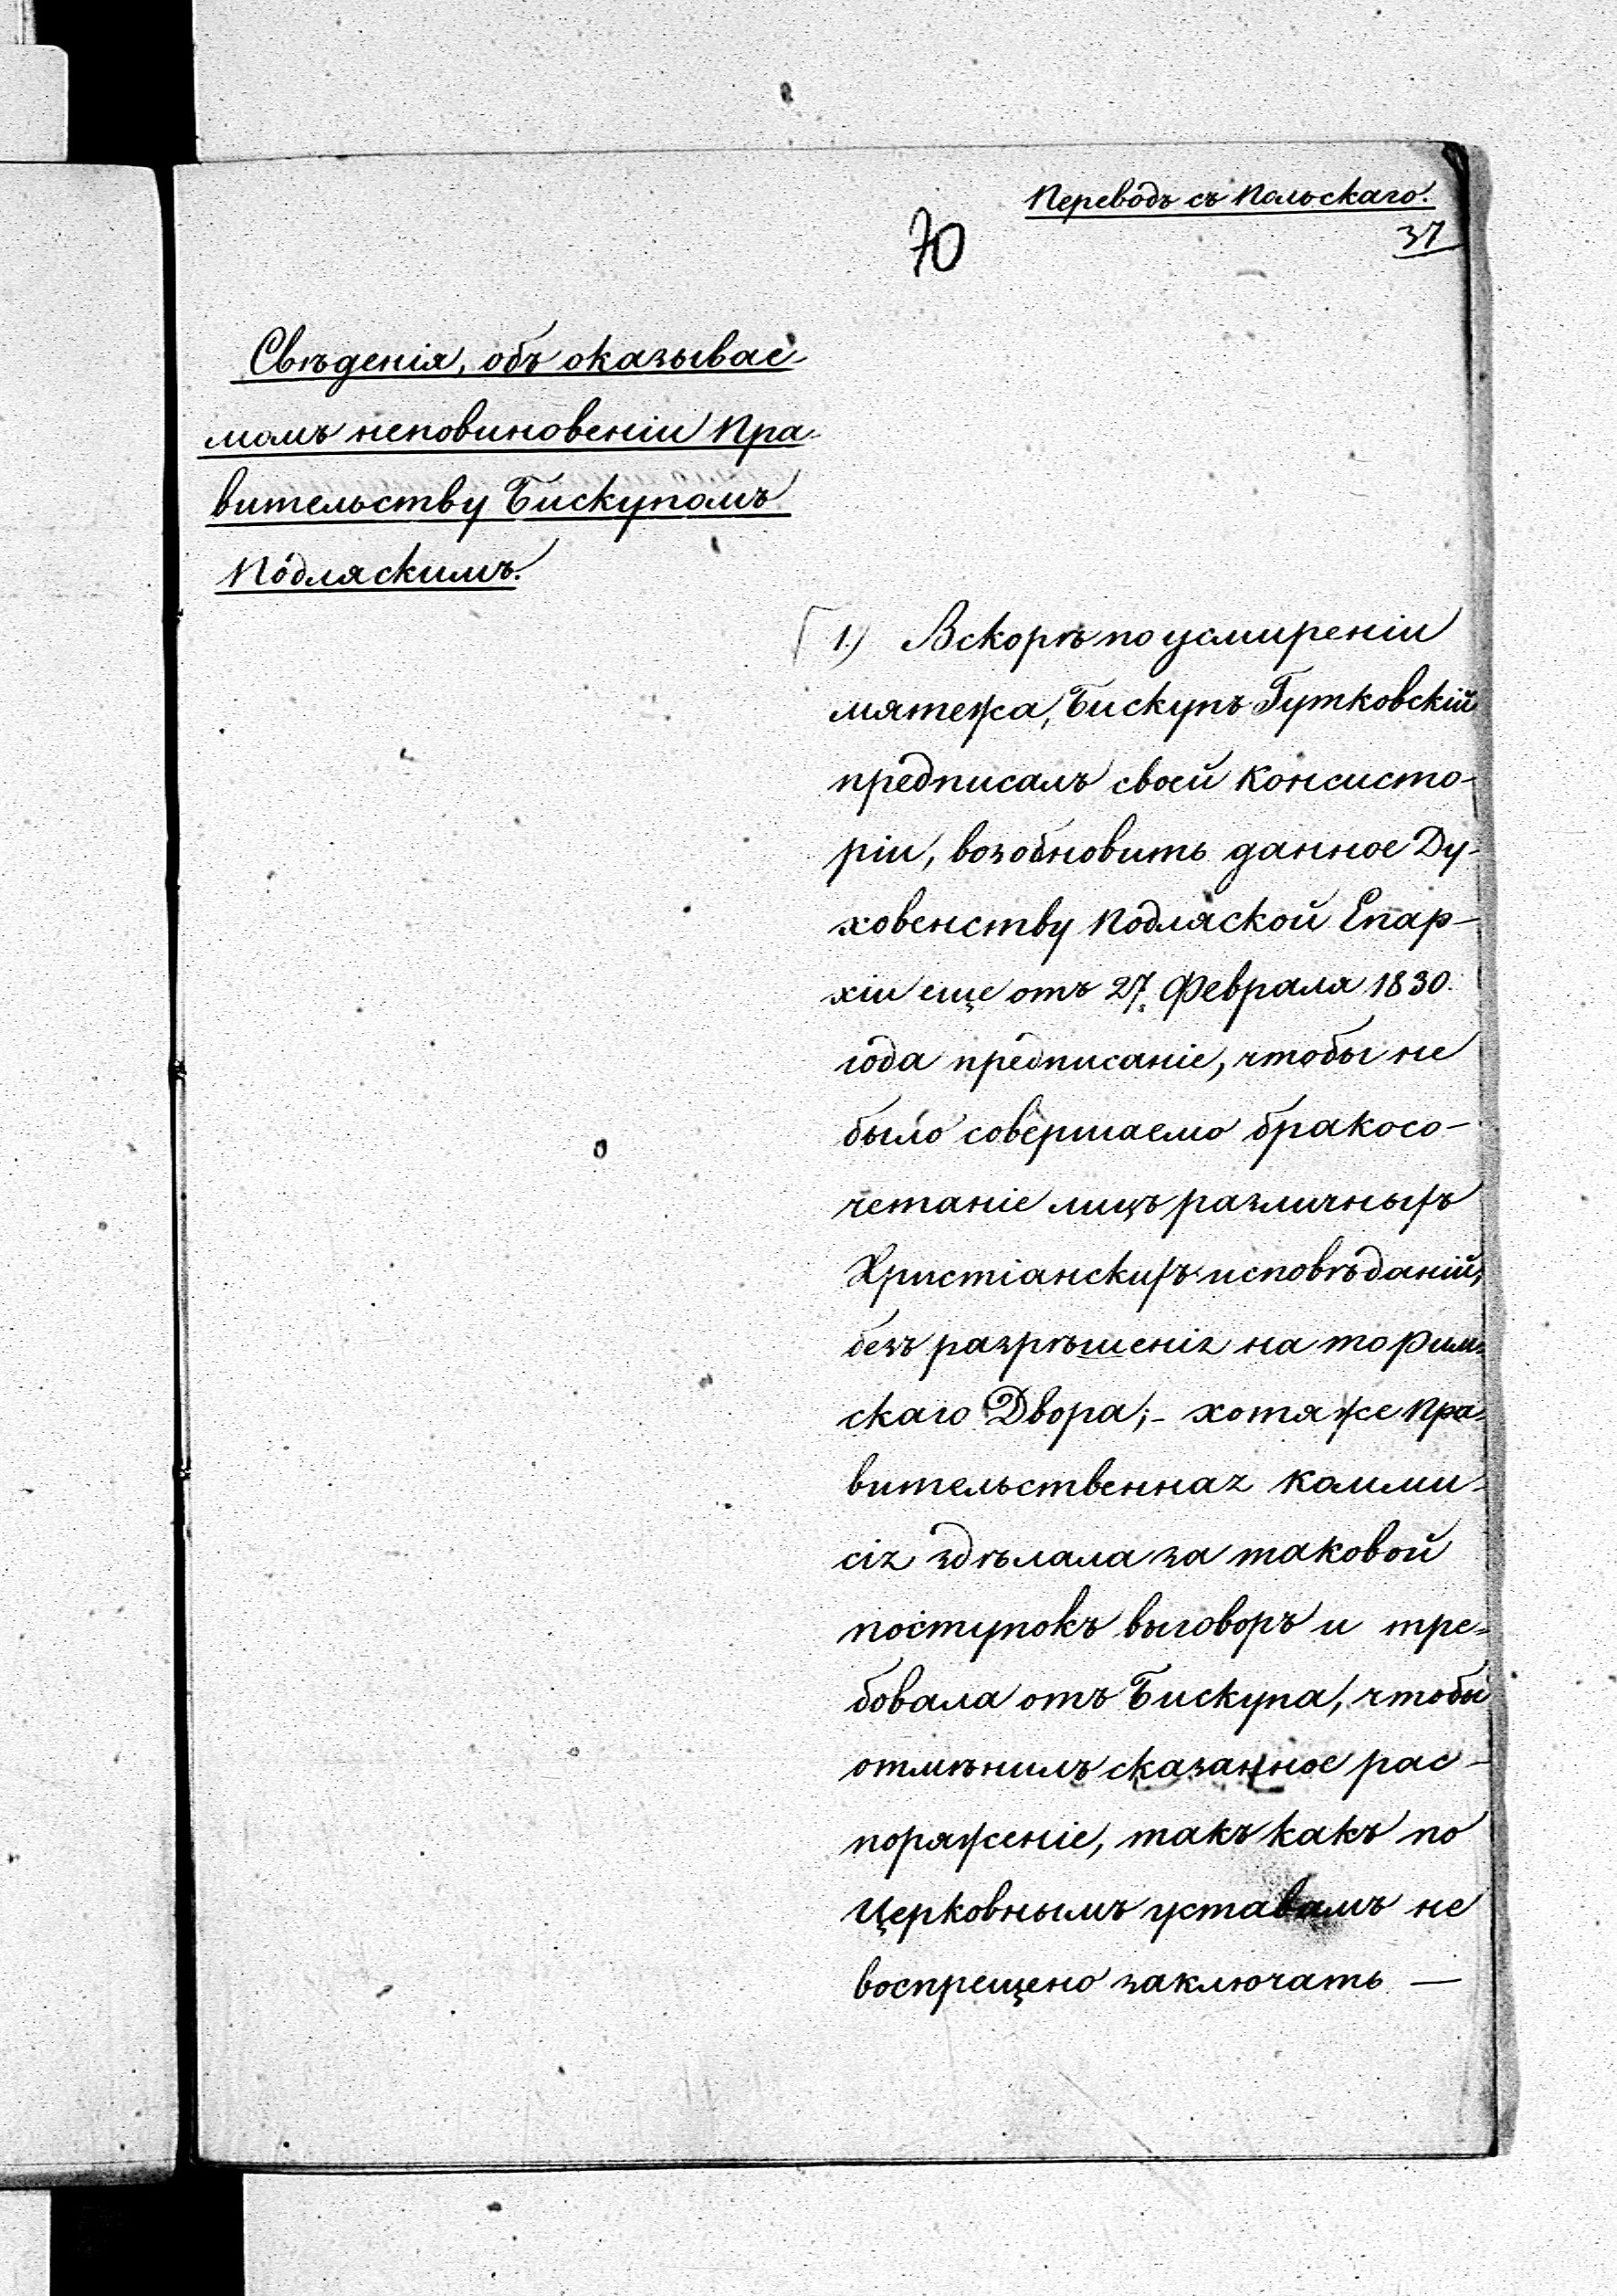 Переводъ съ Польскаго.
37
70
Свѣденія, объ оказывае-
момъ неповиновеніи Пра-
вительству Бискупомъ
Подляскимъ.
1.) Вскорѣ по усмиреніи
мятежа, Бискупъ Гутковскій
предписалъ своей Консисто-
ріи, возобновить данное Ду-
ховенству Подляской Епар-
хіи еще отъ 27. Февраля 1830.
года предписаніе, чтобы не
было совершаемо бракосо-
четаніе лицъ различныхъ
Христіанскихъ исповѣданій,
безъ разрѣшенія на то Рим-
скаго Двора; - хотя же Пра-
вительственная Комми-
сія здѣлала за таковой
поступокъ выговоръ и тре-
бовала отъ Бискупа, чтобы
отмѣнилъ сказанное рас-
поряженіе, такъ какъ по
Церковнымъ уставамъ не
воспрещено заключать —